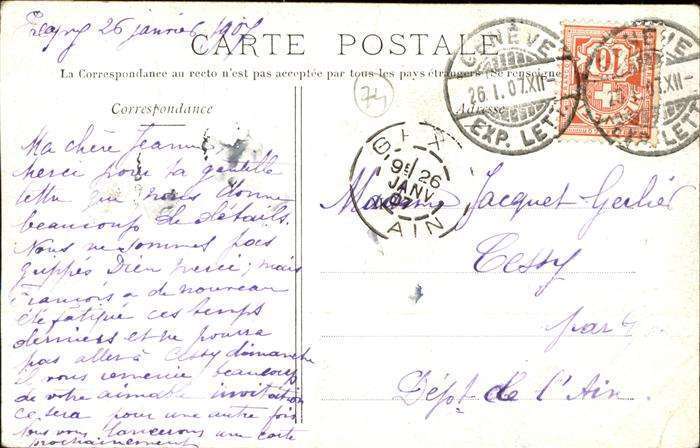 Pregny 26 janvier 1907
CARTE POSTALE
La Correspondance au recto n'est pas acceptée par tous les pays étrangers (Se renseigne
Correspondance
Adresse
74
GENÈVE
26.I.07.XII
EXP. LETT.
10
GEX
9E 26
JANV
07
AIN
Ma chère Jeanne
merci pour ta gentille
lettre qui nous donne
beaucoup de détails.
Nous ne sommes pas
grippés Dieu merci; mais
François a de nouveau
été fatigué ces temps
derniers et ne pourra
pas aller à Cessy dimanche
Je vous remercie beaucoup
de votre aimable invitation
ce sera pour une autre fois
Nous vous lancerons une carte
prochainement
Madame Jacquet-Gerlier
Cessy
par
Dépt de l'Ain